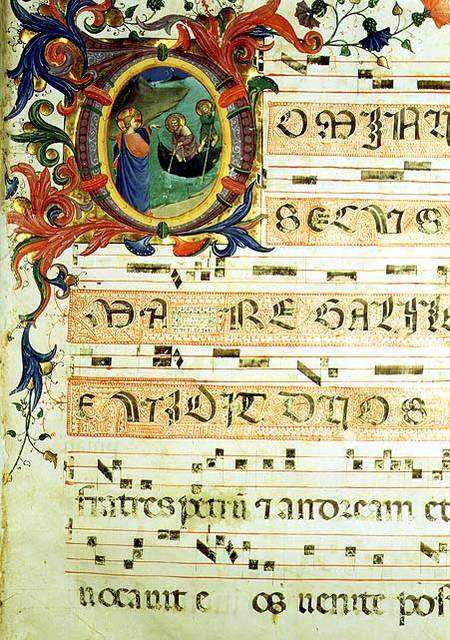 DOMINU
SECUS
MA RE GALILE
E VIDIT DUOS
fratres petrū ⁊ andream et
uocauit e os uenite pos